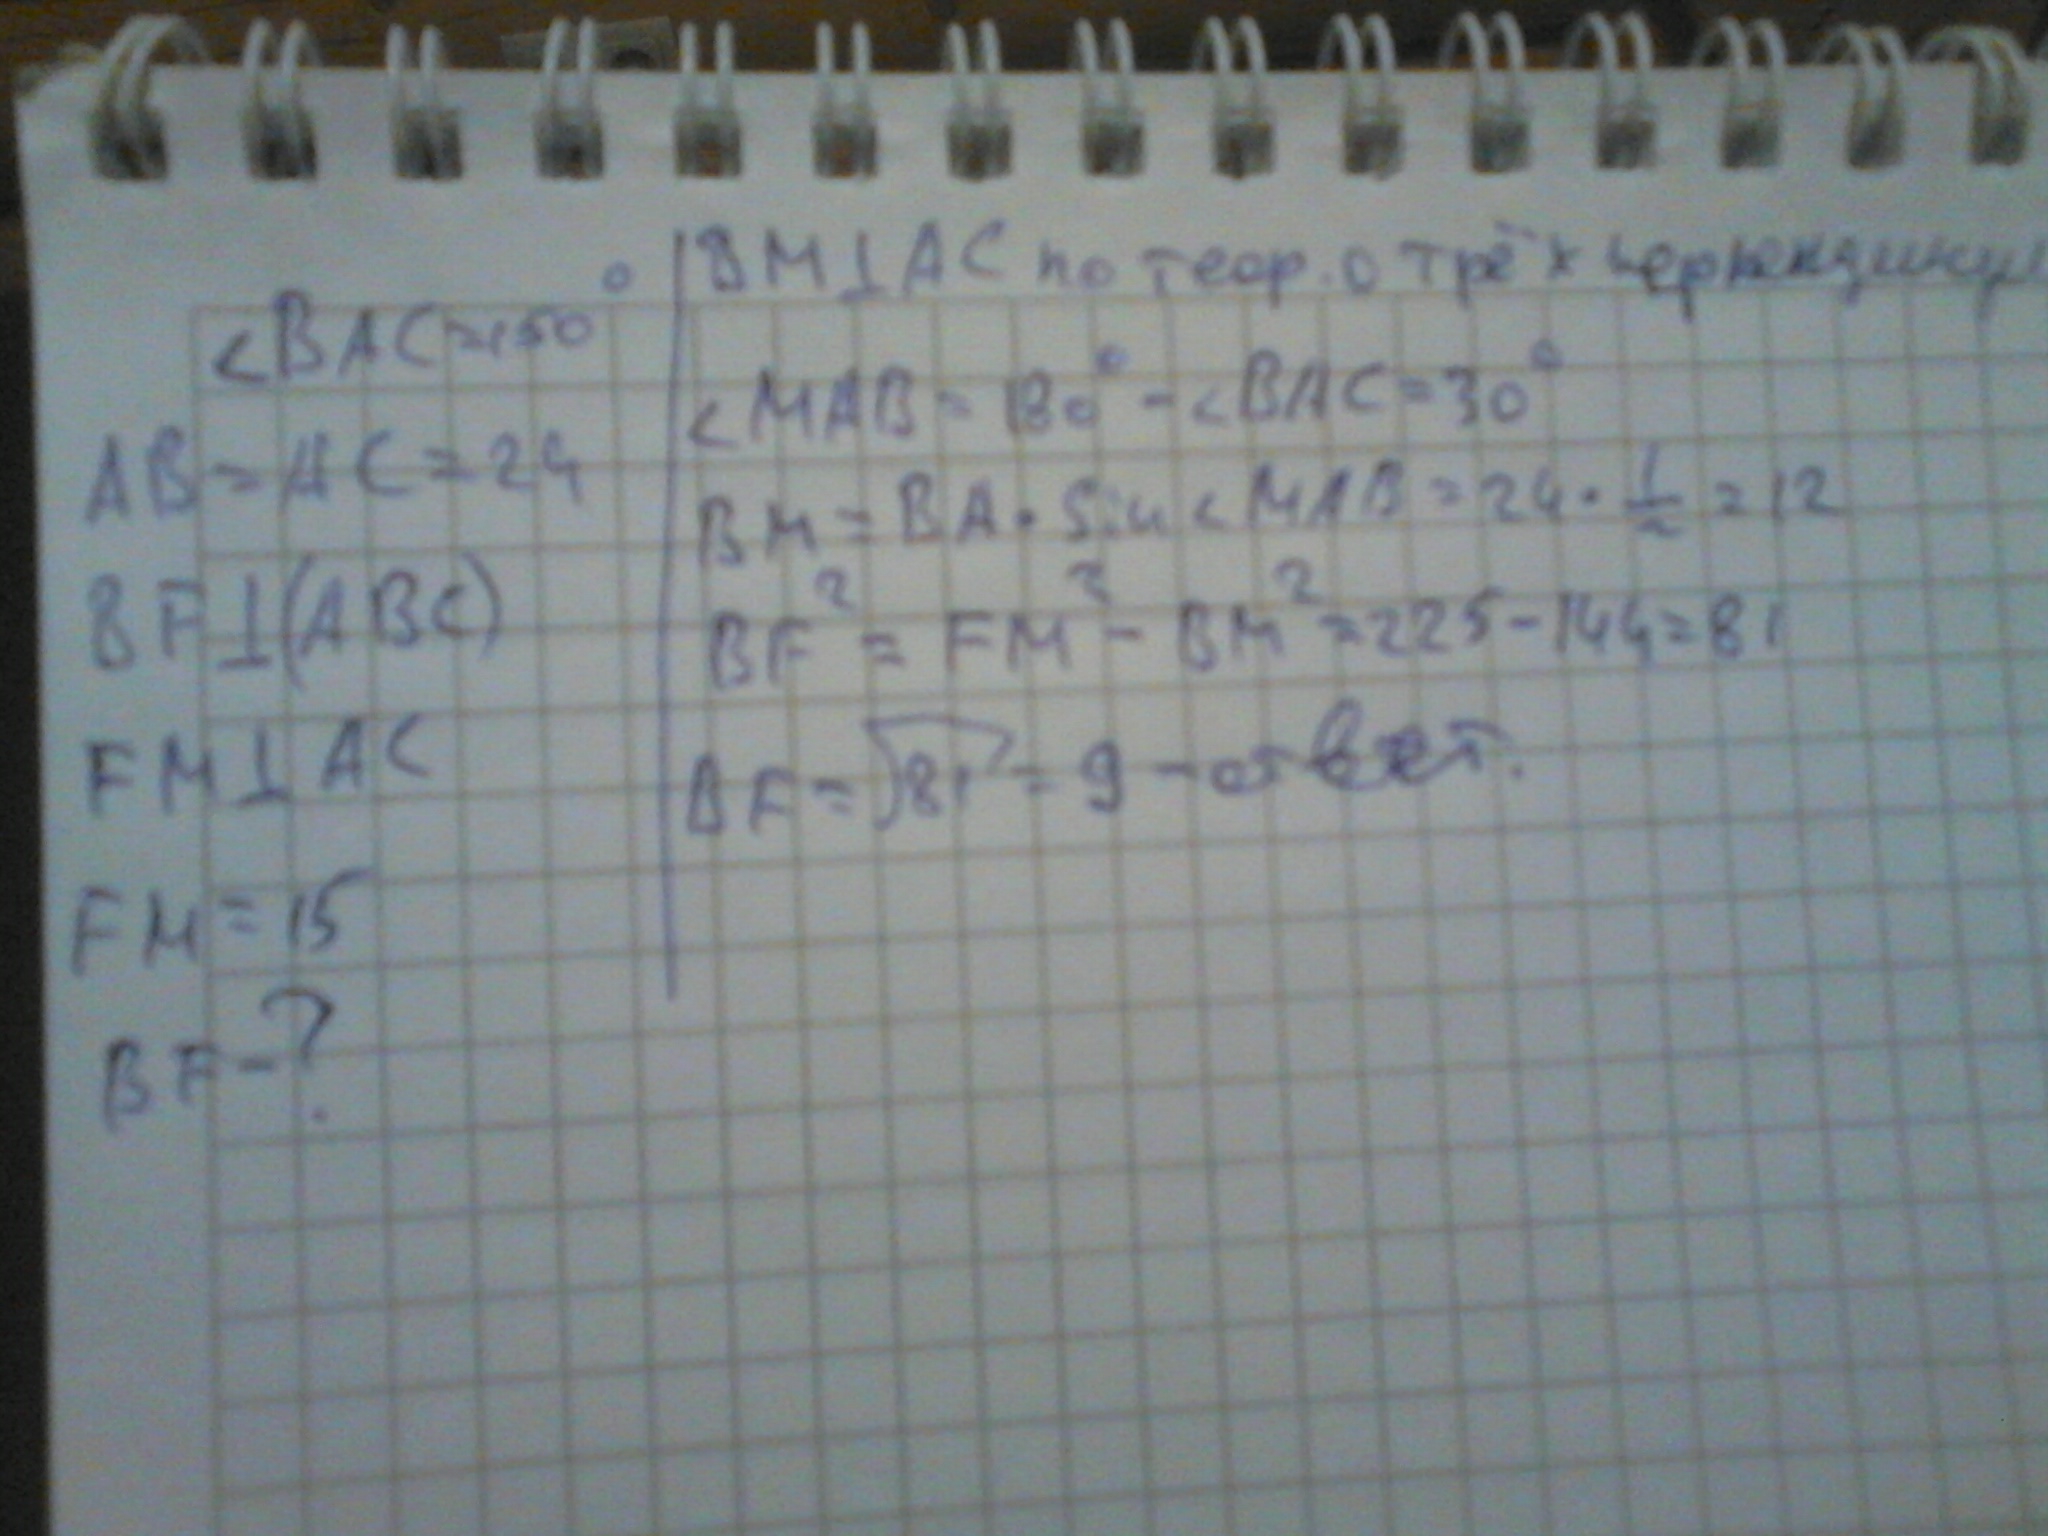 <BAC=150°
AB=AC=24
BF⊥(ABC)
FM⊥AC
FM=15
BF-?
BM⊥AC по теор. о трёх перпендикул
<MAB=180°-<BAC=30°
BM=BA·Sin<MAB=24·1/2=12
BF²=FM²-BM²=225-144=81
BF=√81=9-ответ.